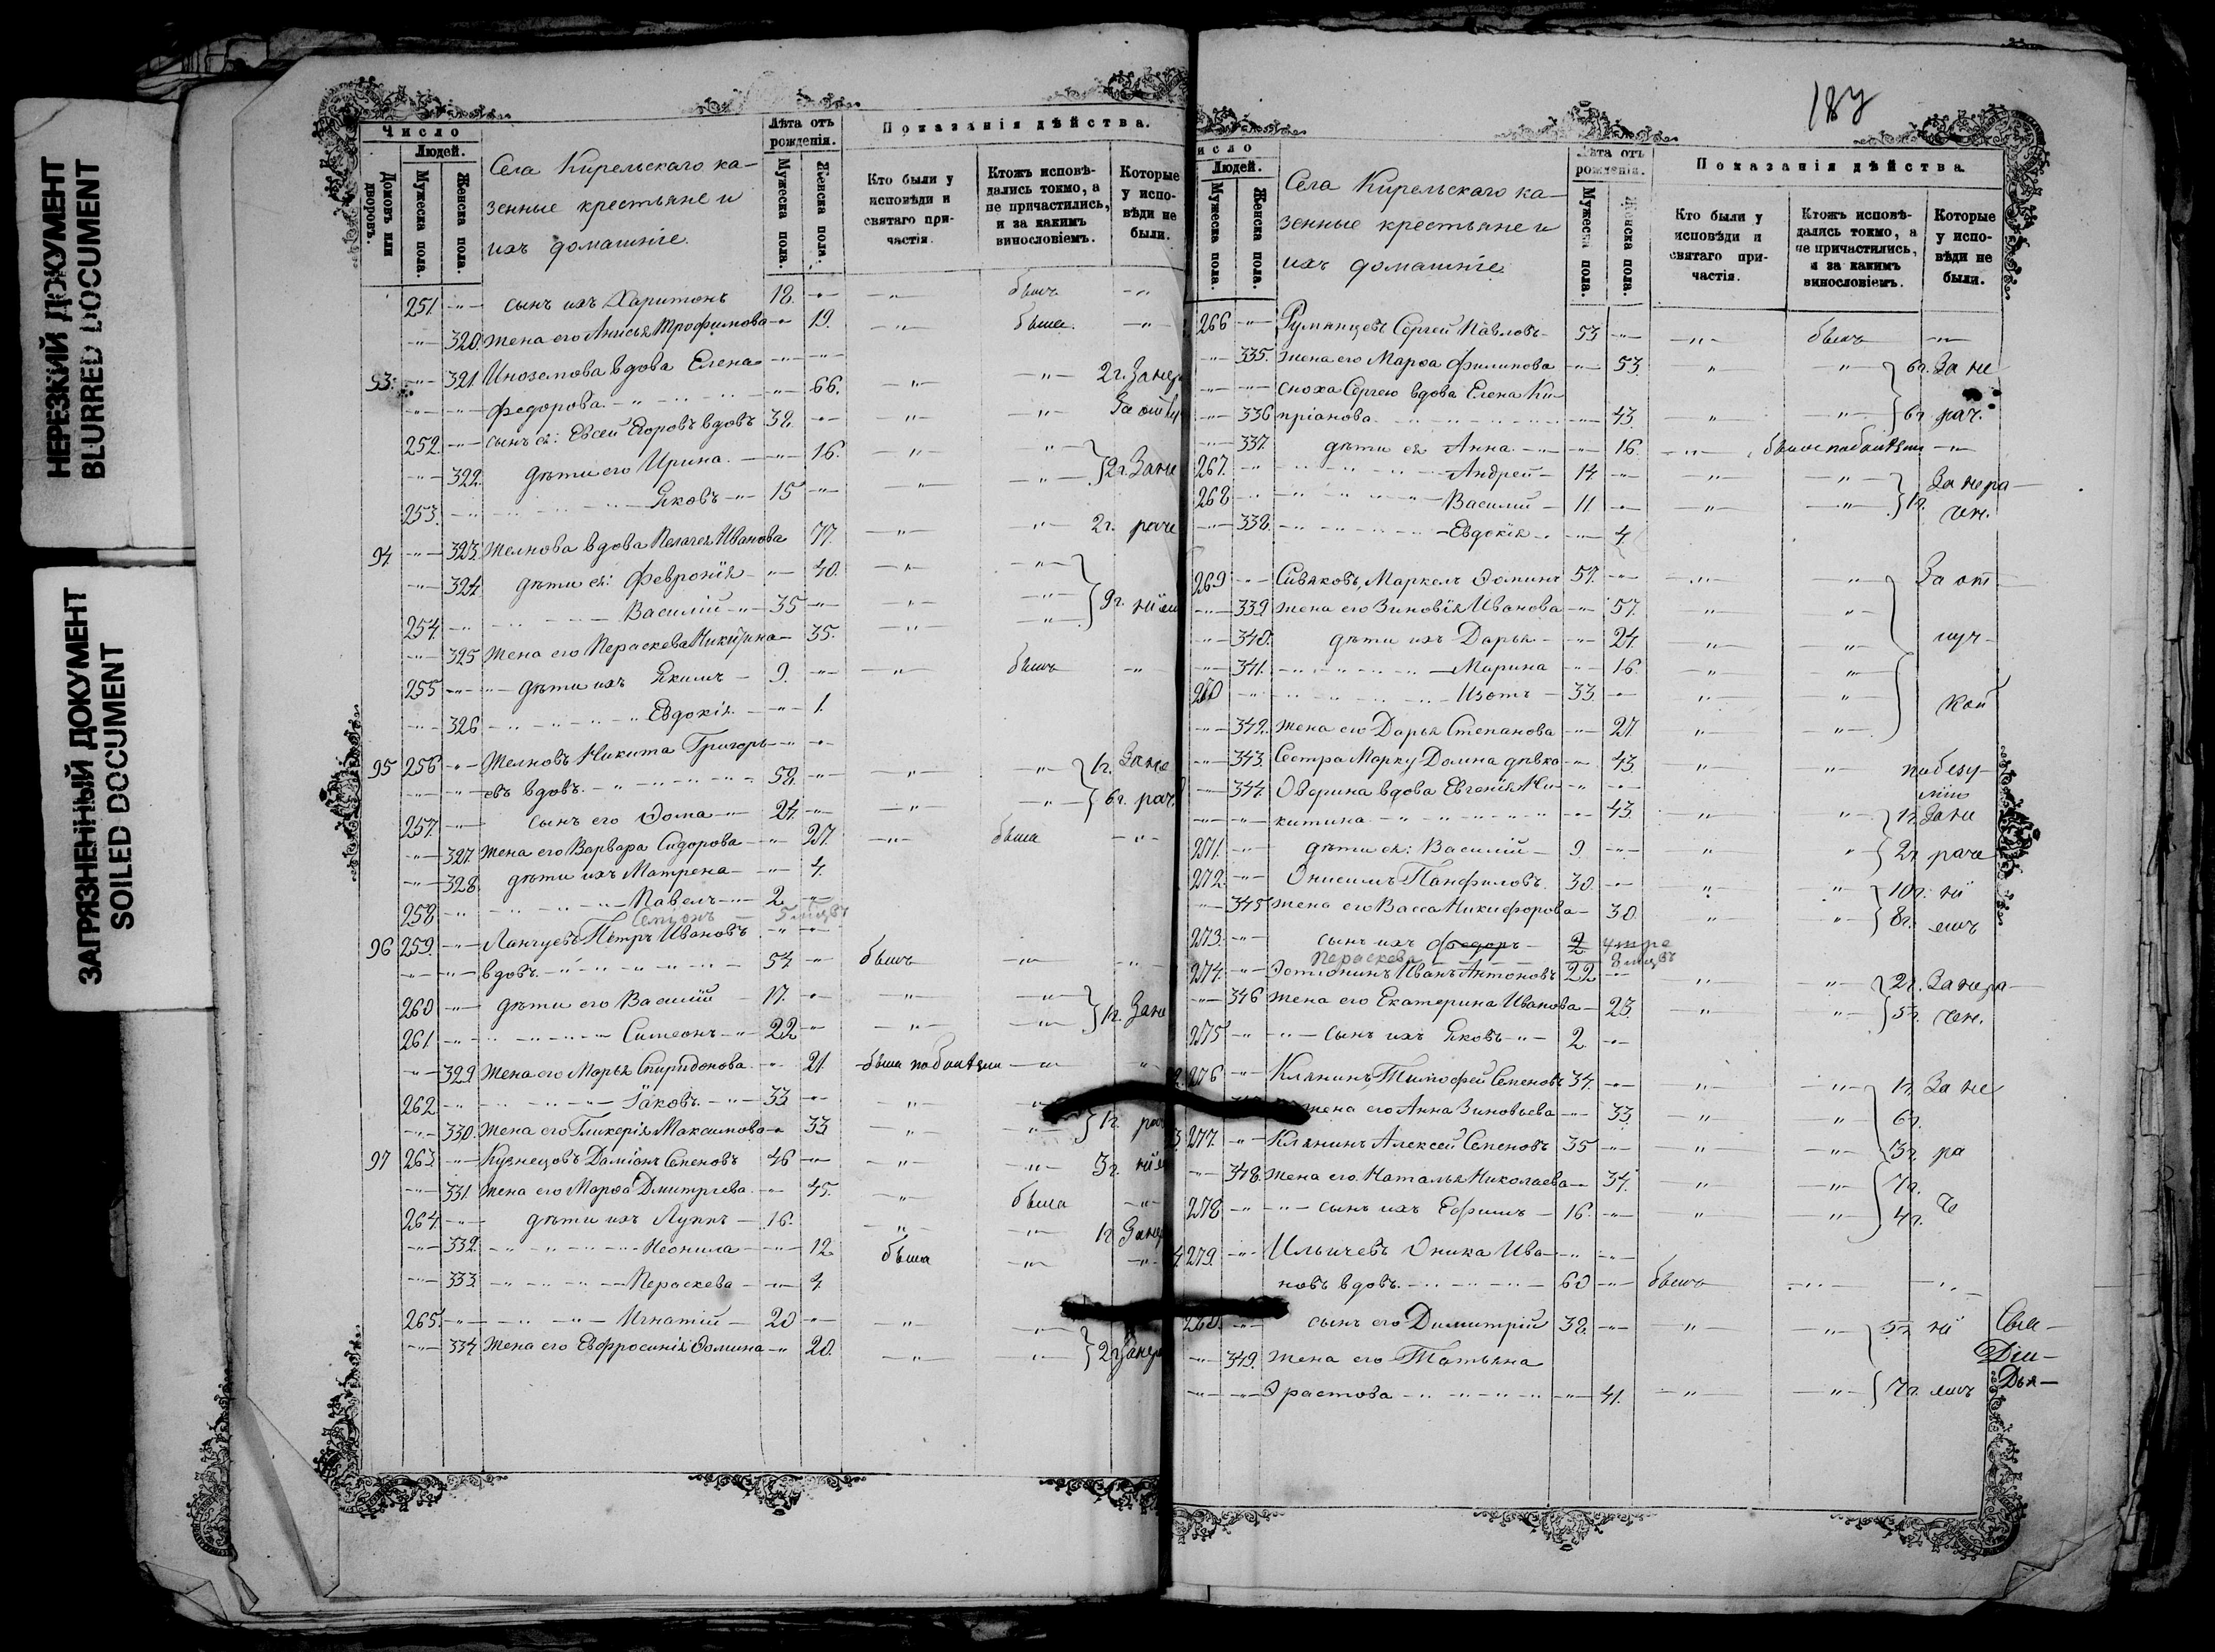 НЕРЕЗКИЙ ДОКУМЕНТ
BLURRED DOCUMENT
ЗАГРЯЗНЕННЫЙ ДОКУМЕНТ
SOILED DOCUMENT
Число
Людей.
Домовъ или дворовъ.
Мужеска пола.
Женска пола.
Села Кирельскаго ка-
зенные крестьяне и
ихъ домашніе.
Лѣта отъ рожденія.
Мужеска пола.
Женска пола.
Показанія дѣйства.
Кто были у исповѣди и святаго причастія.
Ктожъ исповѣдались токмо, а не причастились, и за какимъ винословіемъ.
Которые у исповѣди не были.
251. -"- сынъ ихъ Харитонъ 18. -"- -"- былъ -"-
-"- 320. жена его Анисья Трофимова -"- 19. -"- была. -"-
93. -"- 321. Иноземова вдова Елена -"- -"-
-"- -"- Федорова. -"- 66. -"- -"- 2г.
252. -"- сынъ ея: Евсей Егоровъ вдовъ 38. -"- -"- -"-
-"- 322. дѣти его Ирина. -"- 16. -"- -"-
253. -"- Яковъ -"- 15 -"- -"- -"- 2г. Зане
94. -"- 323. Желнова вдова Пелагея Иванова 77. -"- -"- 2г. раче
-"- 324. дѣти ея: Февронія -"- 40. -"- -"-
254. -"- Василій -"- 35 -"- -"- -"- 9г.
-"- 325. Жена его Пераскева Никитина 35. -"- -"-
255 -"- дѣти ихъ Якимъ - 9. -"- -"- былъ -"-
-"- 326 Евдокія. -"- 1.
95 256 -"- Желновъ Никита Григорь- -"- -"-
-"- -"- евъ вдовъ. 58. -"- -"- -"- 1г. Зане
257. -"- сынъ его Ѳома -"- 24. -"- -"- -"- 6г. рач
-"- 327. Жена его Варвара Сидорова -"- 27. -"- была -"-
-"- 328. дѣти ихъ Матрена -"- 4.
258 -"- Павелъ -"- 2. -"-
Семіонъ - 5 мцвъ
96 259. -"- Ланцевъ Петръ Ивановъ -"- -"-
-"- -"- вдовъ. 54. -"- былъ -"- -"-
260 -"- дѣти его Василій 17. -"- -"- -"-
261. -"- Симеонъ -"- 22 -"- -"- -"- 1г. Зане
-"- 329. Жена его Марья Спиридонова. -"- 21. -"- -"-
262 -"- Іаковъ. -"- 33 -"- -"- -"-
-"- 330. Жена его Гликерія Максимова -"- 33 -"- -"- 1г.
97 263. -"- Кузнецовъ Даміанъ Семеновъ 46 -"- -"- -"- 3г.
-"- 331. Жена его Марѳа Дмитріева. -"- 45. -"- была -"-
264. -"- дѣти ихъ Луппъ - 16. -"- -"- 1г.
-"- 332. Неонила -"- 12 была -"- -"-
-"- 333. Пераскева -"- 4
265. -"- Игнатій - 20 -"- -"- -"-
-"- 334 Жена его Евфросинія Ѳомина -"- 20. -"- -"- 2г.
187
исло
Людей.
Мужеска пола.
Женска пола.
Села Кирельскаго ка-
зенные крестьяне и
ихъ домашніе
Лѣта отъ рожденія.
Мужеска пола.
Женска пола.
Показанія дѣйства.
Кто были у исповѣди и святаго причастія.
Ктожъ исповѣдались токмо, а не причастились, и за какимъ винословіемъ.
Которые у исповѣди не были.
266 -"- Румянцевъ Сергей Павловъ 53 -"- -"- былъ -"-
-"- 335. Жена его Марѳа Филипова -"- 53. -"- -"- 6г. За не
-"- -"- сноха Сергею вдова Елена Ки-
-"- 336 пріанова. -"- 43. -"- -"- 6г. рач.
-"- 337. дѣти ея Анна. -"- 16. -"-
267. -"- Андрей - 14 -"- -"- -"- За нера-
268 -"- Василій - 11 -"- -"- -"- 1г. чен.
-"- 338. Евдокія. -"- 4.
269 -"- Сивяковъ Маркелъ Ѳоминъ 57. -"- -"- -"- За от-
-"- 339. Жена его Зиновія Иванова -"- 57. -"- -"-
-"- 340. дѣти ихъ Дарья -"- 24. -"- -"- луч-
-"- 341. Марина -"- 16. -"- -"-
270 -"- Изотъ - 33. -"- -"- -"- кой
-"- 342. Жена его Дарья Степанова -"- 27. -"- -"-
-"- 343. Сестра Марку Домна дѣвка -"- 43. -"- -"- побезу-
мію
-"- 344. Оверина вдова Евгенія Ни- -"- -"-
-"- -"- китина -"- 43. -"- -"- 1г. Зане
271. -"- дѣти ея: Василій - 9. -"- -"- -"- 2г. раче
272. -"- Онисимъ Панфиловъ. 30. -"- -"- -"- 10г. ні
-"- 345 Жена его Васса Никифорова - 30. -"- -"- 8г. емъ
273. -"- сынъ ихъ Федоръ - 2 умре
Пераскева 8 мцвъ
274. -"- Иванъ Антоновъ 22 -"- -"- -"- 2г. Занера-
-"- 346 Жена его Екатерина Иванова - 23. -"- -"- 3г. чен.
275 -"- сынъ ихъ Яковъ -"- 2. -"-
276 -"- Клянинъ Тимофей Семеновъ 34. -"- -"- -"- 1г. За не
жена его Анна Зиновьева -"- 33. -"- -"- 6г.
277. -"- Клянинъ Алексей Семеновъ 35 -"- -"- -"- 3г. ра
-"- 348. Жена его Наталья Николаева -"- 34. -"- -"- 7г.
278 -"- сынъ ихъ Ефимъ - 16. -"- -"- -"- 4г. че
279. -"- Ильичевъ Оника Ива- -"- -"-
новъ вдовъ. 60 -"- былъ -"- -"-
280. -"- сынъ его Димитрій 38. -"- -"- -"- 5г. ні
-"- 349. Жена его Татьяна
-"- -"- Эрастова -"- 41. -"- -"- 7г. емъ
Дья-